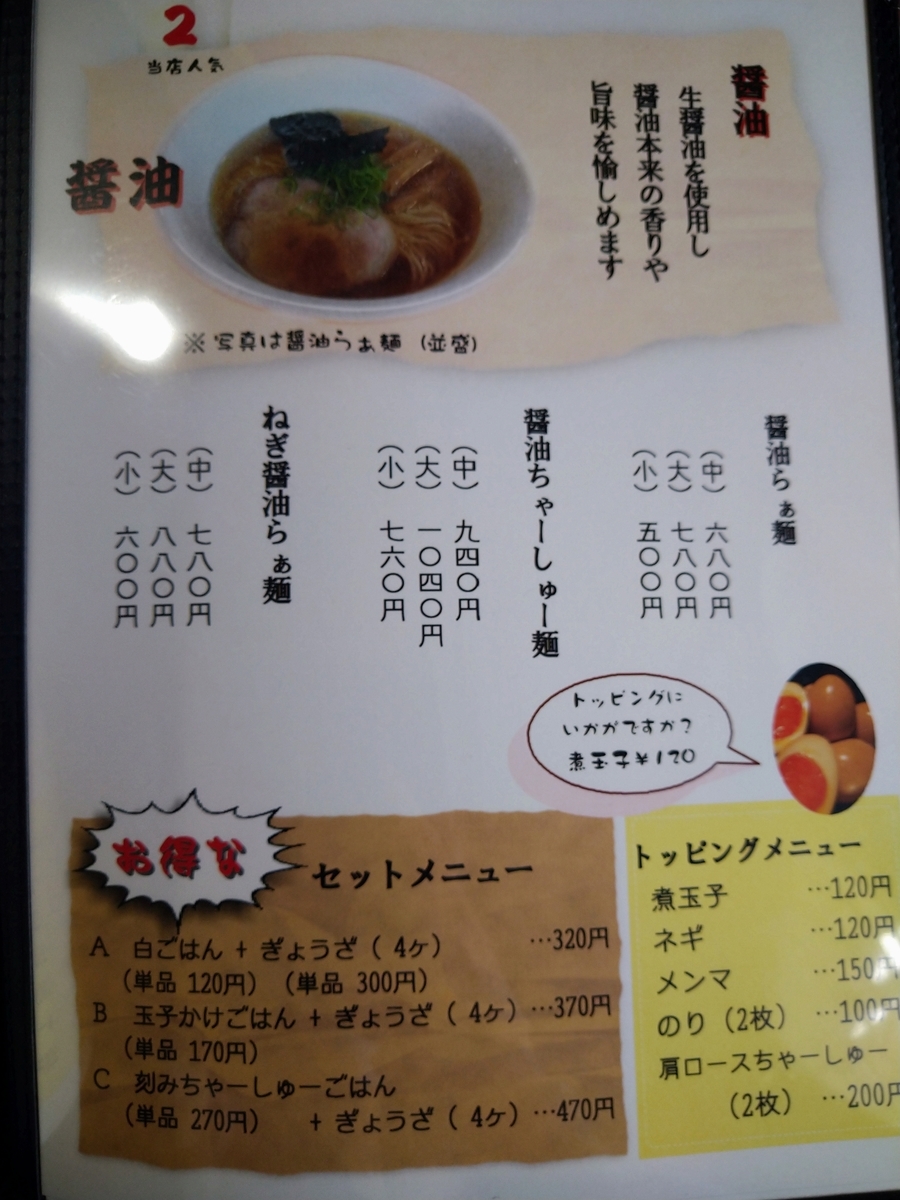 2
当店人気
醤油
醤油
生醤油を使用し
醤油本来の香りや
旨味を愉しめます
※写真は醤油らぁ麺 (並盛)
醤油らぁ麺
(中) 六八〇円
(大) 七八〇円
(小) 五〇〇円
醤油ちゃーしゅー麺
(中) 九四〇円
(大) 一〇四〇円
(小) 七六〇円
ねぎ醤油らぁ麺
(中) 七八〇円
(大) 八八〇円
(小) 六〇〇円
トッピングに
いかがですか?
煮玉子¥120
お得な
セットメニュー
A 白ごはん + ぎょうざ ( 4ケ) …320円
(単品 120円) (単品 300円)
B 玉子かけごはん + ぎょうざ ( 4ケ) …370円
(単品 170円)
C 刻みちゃーしゅーごはん
(単品 270円) + ぎょうざ ( 4ケ) …470円
トッピングメニュー
煮玉子 …120円
ネギ …120円
メンマ …150円
のり (2枚) …100円
肩ロースちゃーしゅー
(2枚) …200円